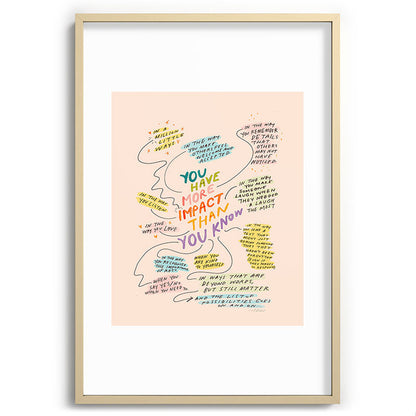 IN A
MILLION
LITTLE
WAYS
IN THE WAY
YOU MAKE
OTHERS FEEL
WELCOME AND
ACCEPTED
IN THE WAY
YOU REMEMBER
DETAILS
THAT
OTHERS
MAY NOT
HAVE
NOTICED
YOU
HAVE
MORE
IMPACT
THAN
YOU KNOW
IN THE WAY
YOU MAKE
SOMEONE
LAUGH WHEN
THEY NEEDED
A LAUGH
THE MOST
IN THE WAY
YOU LISTEN
IN THE
WAY YOU LOVE
IN THE WAY
YOU RECOGNIZE
THE IMPORTANCE
OF REST
WHEN YOU
ARE KIND
TO YOURSELF
WHEN YOU
SAY YES/NO
WHEN YOU NEED TO
IN WAYS THAT ARE
BEYOND WORDS,
BUT STILL MATTER
AND THE LIST OF
POSSIBILITIES GOES
ON AND ON